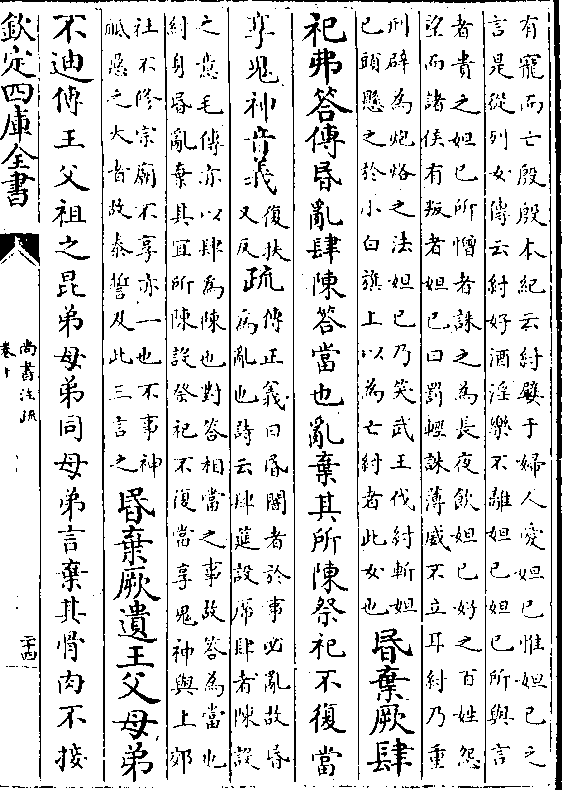 有寵而亡殷殷本紀云紂嬖于婦人愛妲己惟妲己之
言是從列女傳云紂好酒淫樂不離妲己妲己所與言
者貴之妲己所憎者誅之為長夜飲妲己好之百姓怨
望而諸侯有叛者妲己曰罰輕誅薄威不立耳紂乃重
刑辟為炮烙之法妲己乃笑武王伐紂斬妲
己頭懸之於小白旗上以為亡紂者此女也
昬棄厥肆
祀弗答傳昬亂肆陳答當也亂棄其所陳祭祀不復當
享鬼神音義
復扶
又反
疏
傳正義曰昬闇者於事必亂故昬
為亂也詩云肆筵設席肆者陳設
之意毛傳亦以肆為陳也對答相當之事故答為當也
紂身昬亂棄其宜所陳設祭祀不復當享鬼神與上郊
社不修宗廟不享亦一也不事神
祗惡之大者故泰誓及此三言之
昬棄厥遺王父母弟
不迪傳王父祖之昆弟母弟同母弟言棄其骨肉不接
欽定四庫全書
尚書注疏
卷十
二十四